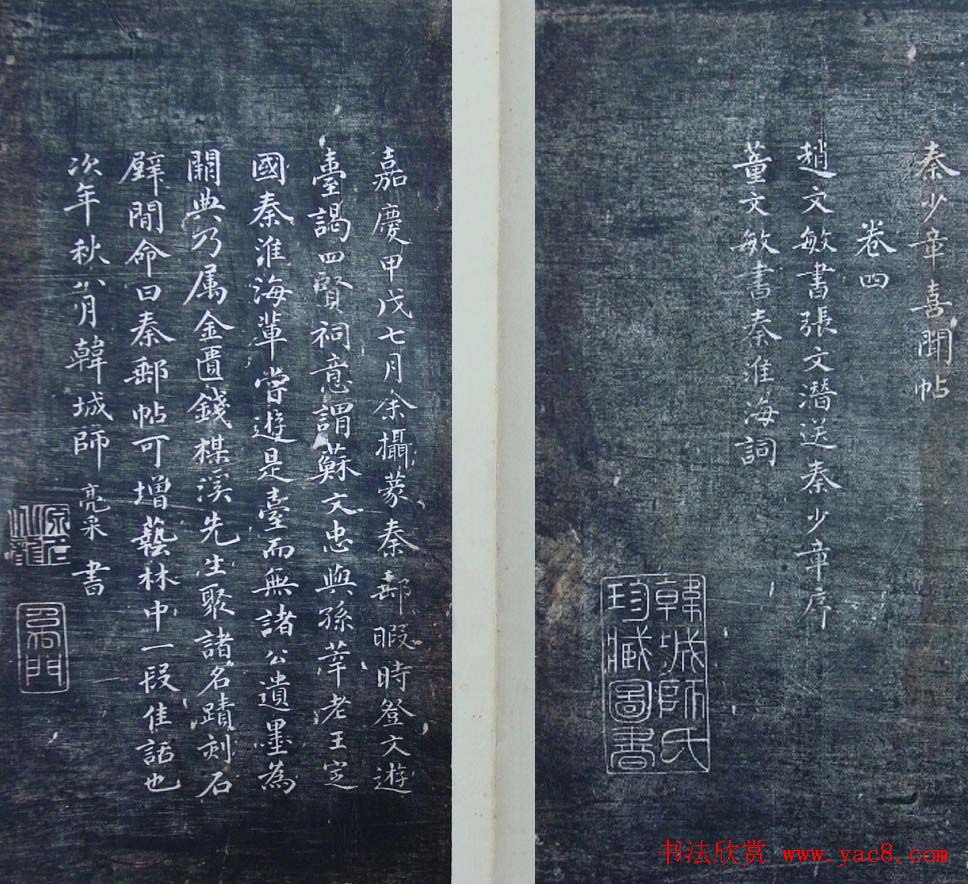 秦少章喜聞帖
卷四
趙文敏書張文潛送秦少章序
董文敏書秦淮海詞
韓城師氏
珍臧圖書
嘉慶甲戊七月余攝篆秦郵暇時登文遊
臺謁四賢祠意謂蘇文忠與孫莘老王定
國秦淮海輩嘗遊是臺而無諸公遺墨為
闕典乃属金匱錢楳溪先生聚諸名蹟刻石
壁間命曰秦郵帖可增藝林中一段佳話也
次年秋八月韓城師亮采書
书法欣赏 www.yac8.com